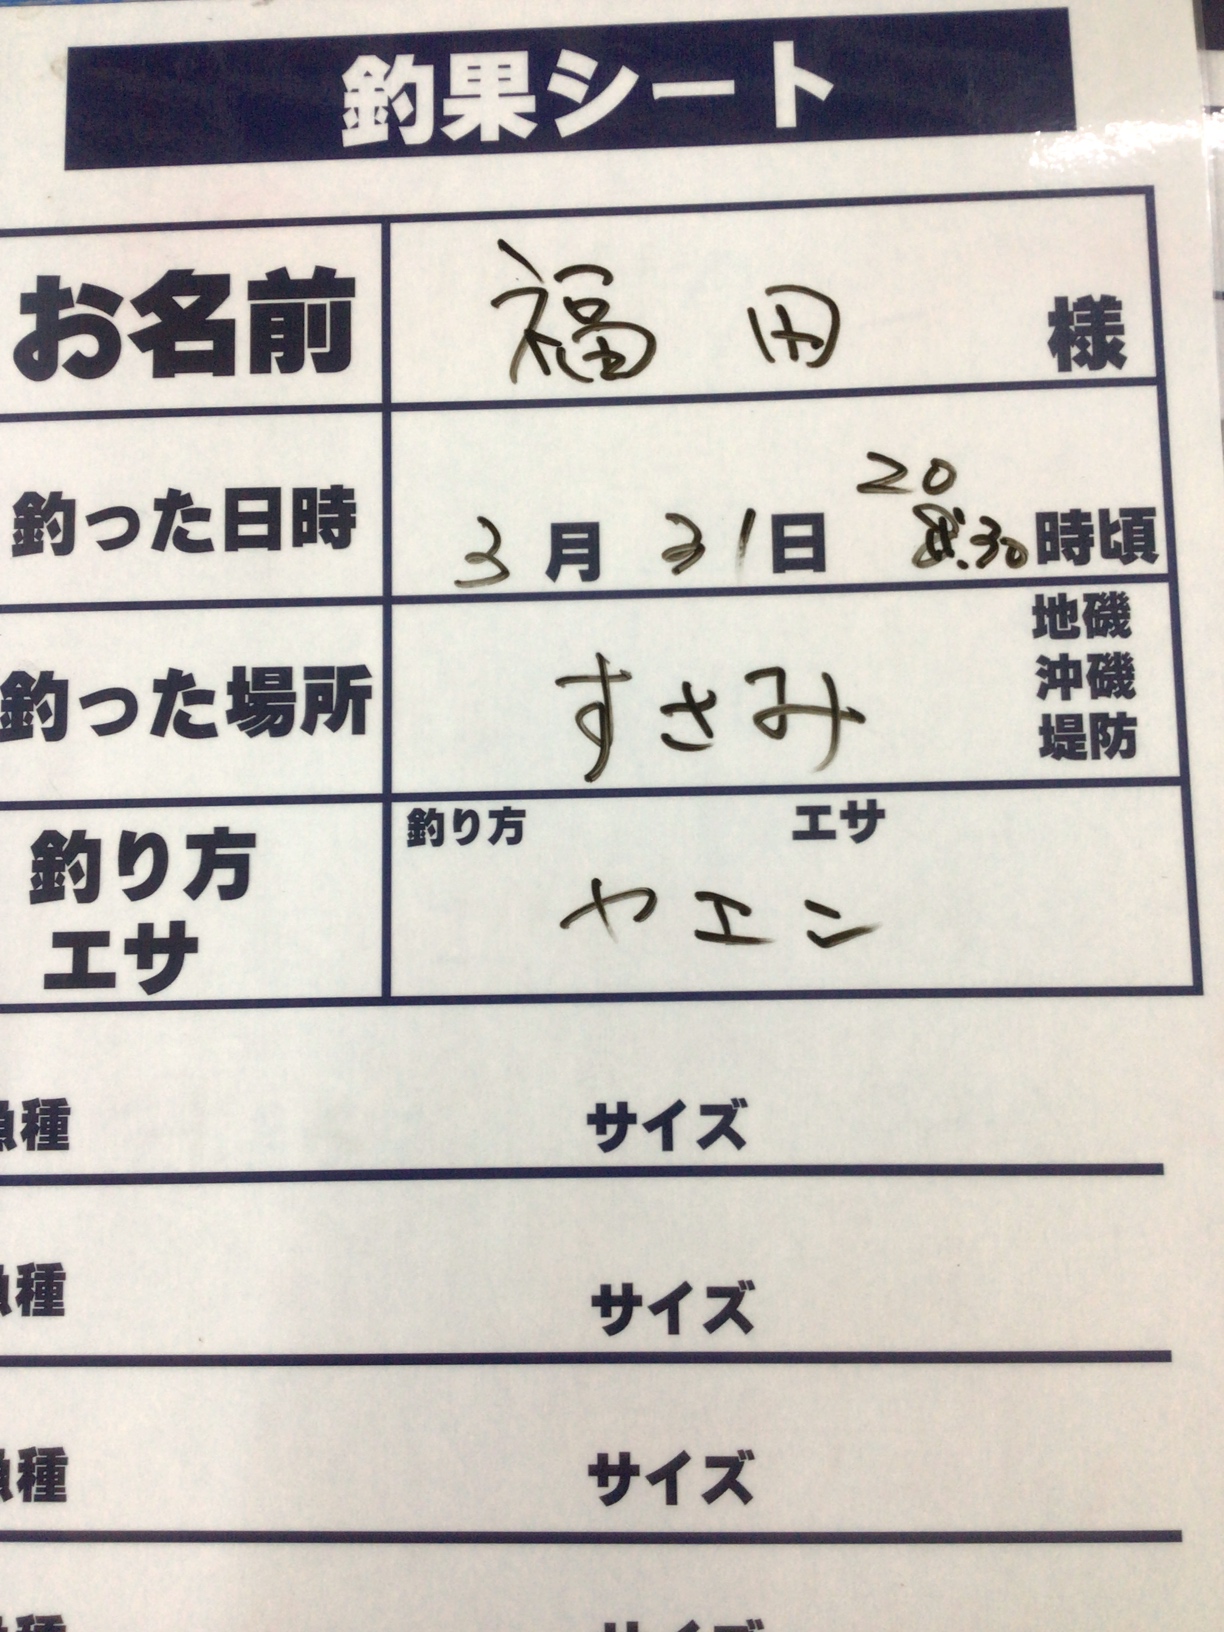 釣果シート
お名前 福田 様
釣った日時 3月31日 20 8:30時頃
釣った場所 すさみ 地磯
沖磯
堤防
釣り方
エサ
釣り方 エサ
ヤエン
魚種 サイズ
魚種 サイズ
魚種 サイズ
魚種 サイズ